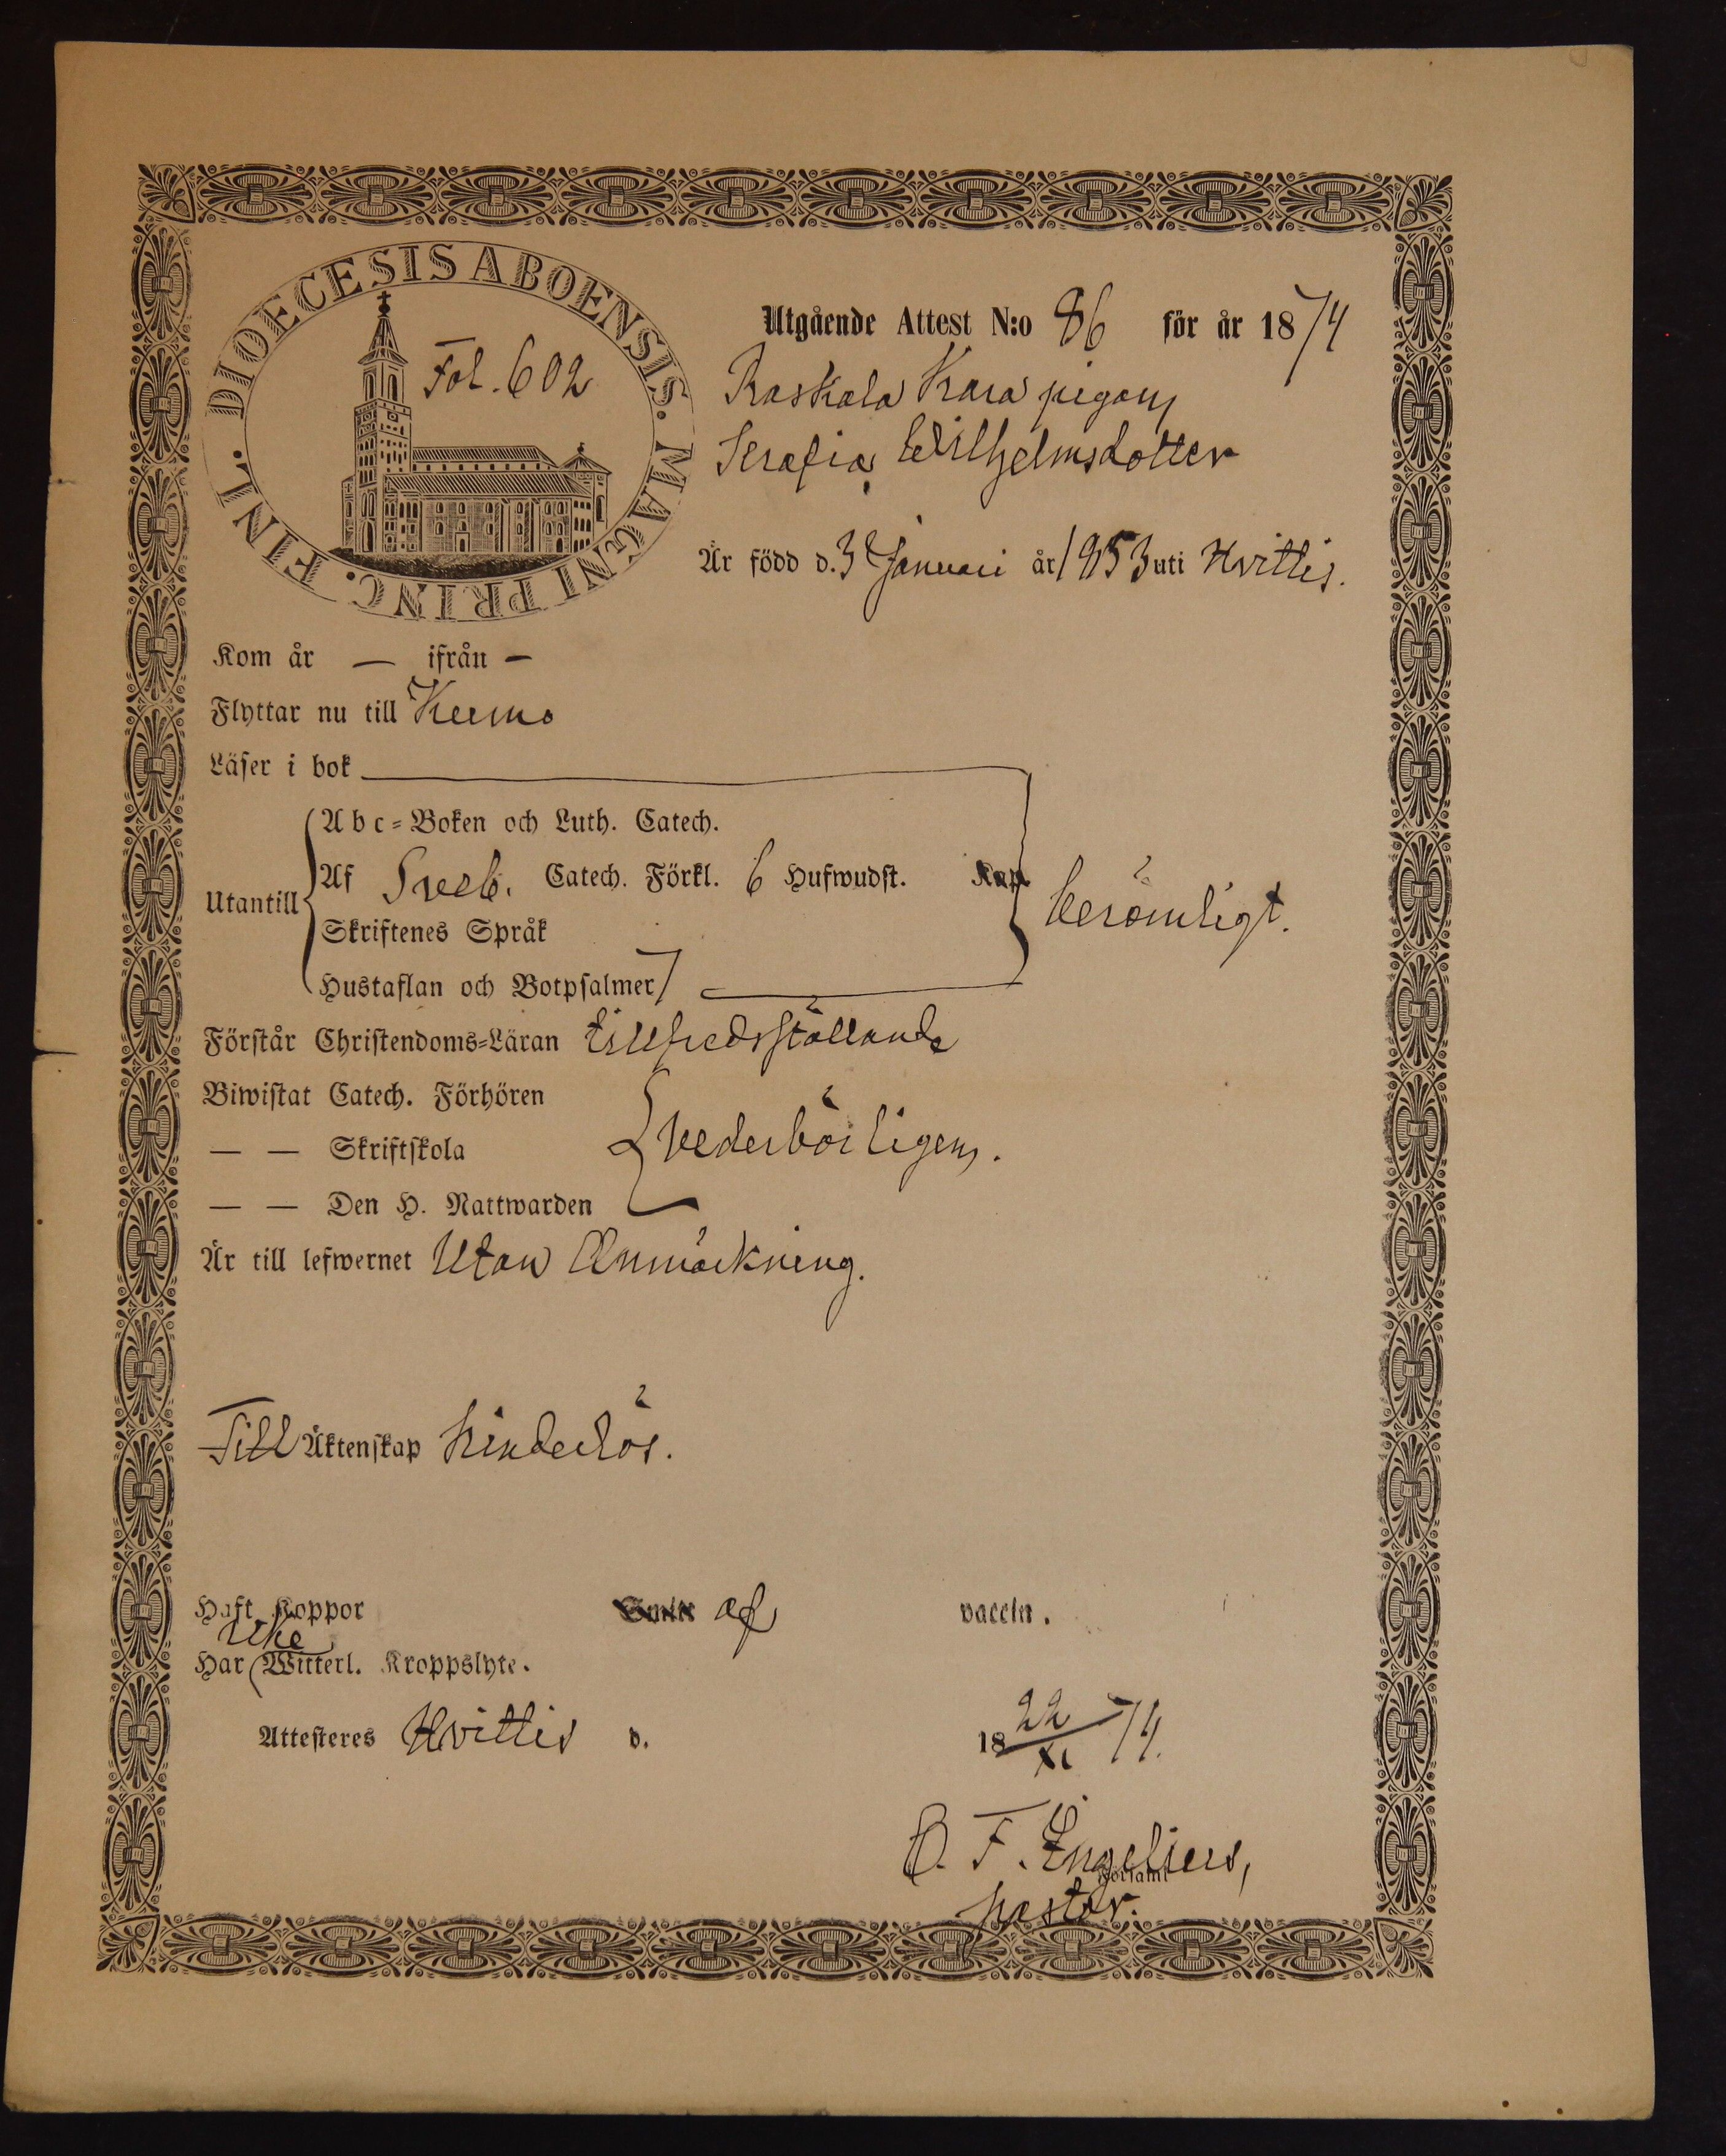 DIOECESIS ABOENSIS. MAGNI PRINC. FINL.
Fol. 602
Utgående Attest N:o 86 för år 1874
Raskala Kara pigan
Serafia Wilhelmsdotter
Är född d. 3 Januari år 1853 uti Hvittis.
Kom år — ifrån —
Flyttar nu till Keumo
Läser i bok
Abc-Boken och Luth. Catech.
Utantill
Af Sveb. Catech. Förkl. 6 Hufwudst. Kap.
berömligt.
Skriftenes Språk
Hustaflan och Botpsalmer
Förstår Christendoms-Läran tillfredsställande
Biwistat Catech. Förhören
— — Skriftskola
vederbörligen.
— — Den H. Nattwarden
Är till lefwernet Utan Anmärkning.
Till Äktenskap hinderlös.
Haft Koppor af vaccin.
icke
Har Witterl. Kroppslyte.
Attesteres Hvittis d. 18 22/XI 74.
O. F. Engelius,
Församl.
pastor.